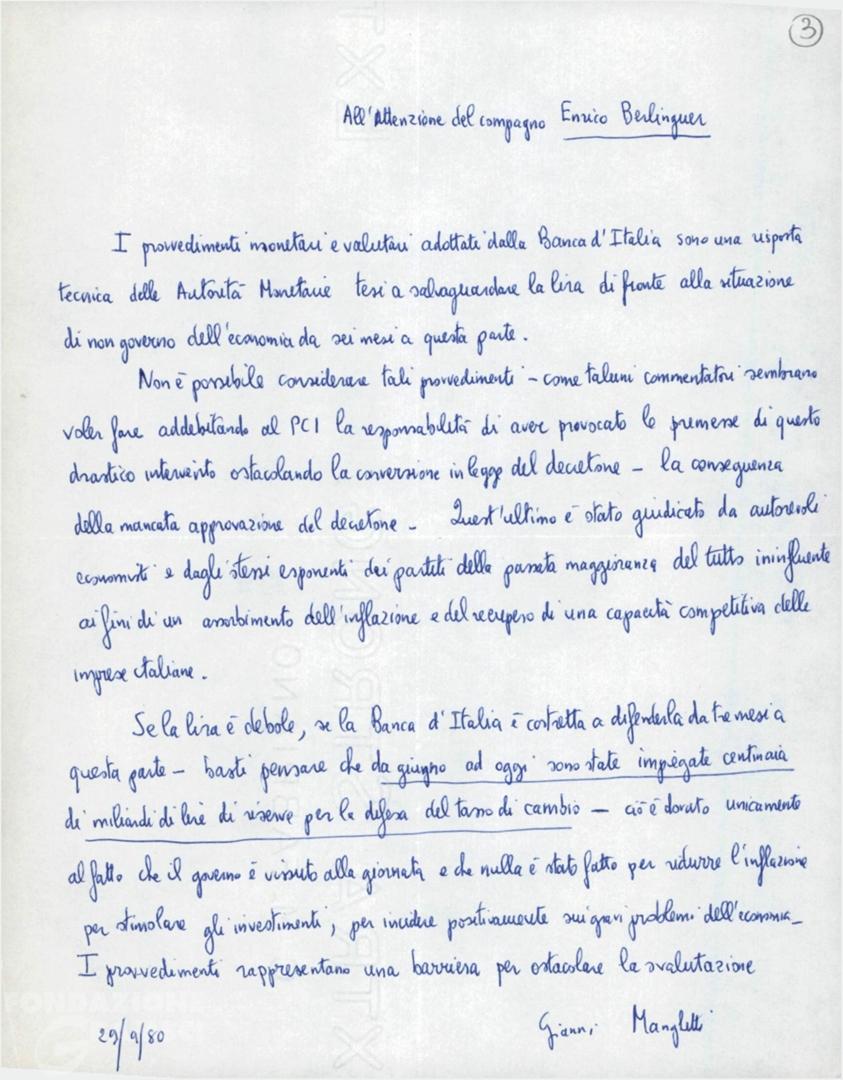 3
All'Attenzione del compagno Enrico Berlinguer
I provvedimenti monetari e valutari adottati dalla Banca d'Italia sono una risposta
tecnica delle Autorità Monetarie tesi a salvaguardare la lira di fronte alla situazione
di non governo dell'economia da sei mesi a questa parte.
Non è possibile considerare tali provvedimenti - come taluni commentatori sembrano
voler fare addebitando al PCI la responsabilità di aver provocato le premesse di questo
drastico intervento ostacolando la conversione in legge del decretone - la conseguenza
della mancata approvazione del decretone - Quest'ultimo è stato giudicato da autorevoli
economisti e dagli stessi esponenti dei partiti della passata maggioranza del tutto ininfluente
ai fini di un assorbimento dell'inflazione e del recupero di una capacità competitiva delle
imprese italiane.
Se la lira è debole, se la Banca d'Italia è costretta a difenderla da tre mesi a
questa parte - basti pensare che da giugno ad oggi sono state impiegate centinaia
di miliardi di lire di riserve per la difesa del tasso di cambio - ciò è dovuto unicamente
al fatto che il governo è vissuto alla giornata e che nulla è stato fatto per ridurre l'inflazione
per stimolare gli investimenti, per incidere positivamente sui gravi problemi dell'economia -
I provvedimenti rappresentano una barriera per ostacolare la svalutazione
Gianni Manghetti
29/9/80
FONDAZIONE